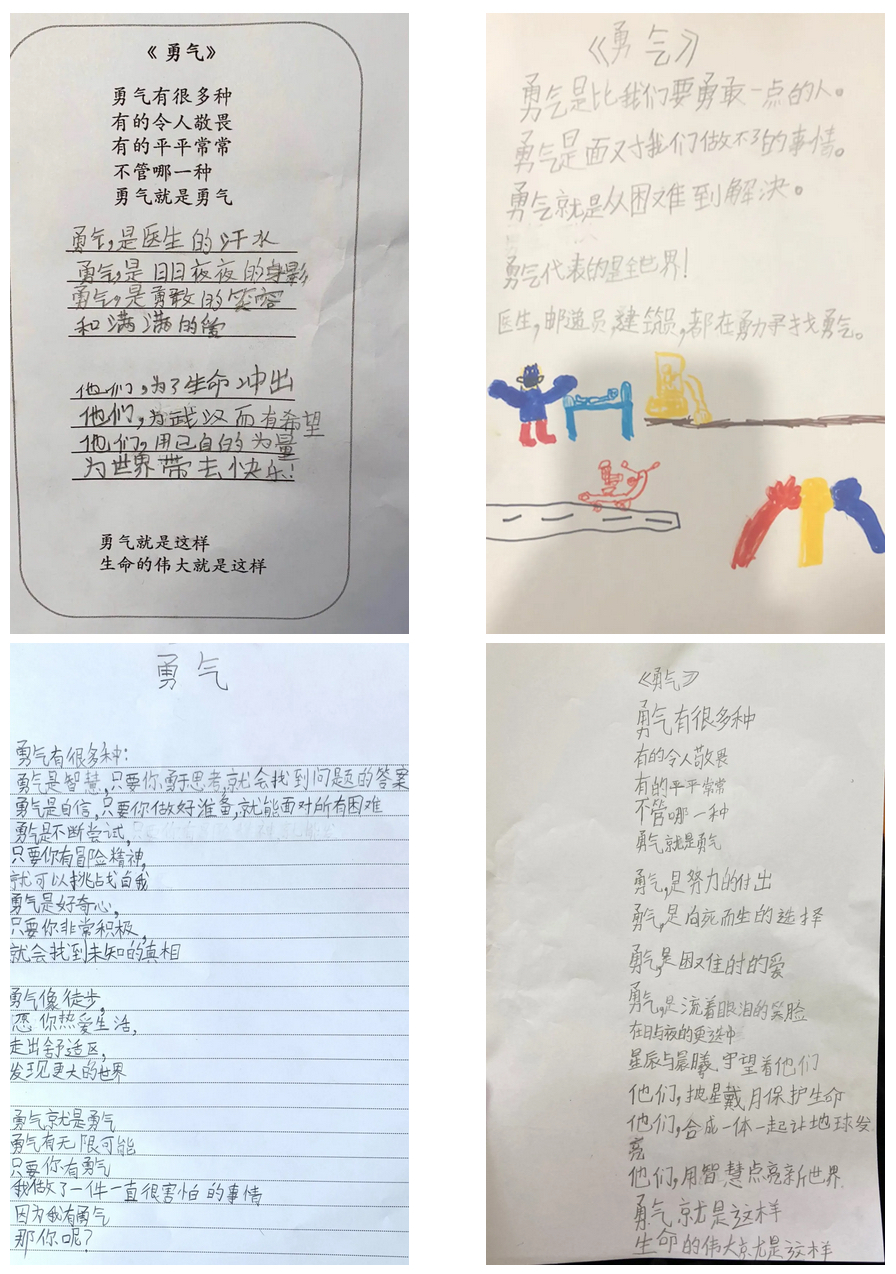 《勇气》
勇气有很多种
有的令人敬畏
有的平平常常
不管哪一种
勇气就是勇气
勇气,是医生的汗水
勇气,是日日夜夜的身影
勇气,是勇敢的笑容
和满满的爱
他们,为了生命冲出
他们,为武汉而有希望
他们,用己自的为量
为世界带去快乐!
勇气就是这样
生命的伟大就是这样
《勇气》
勇气是比我们要勇敢一点的人。
勇气是面对我们做不了的事情。
勇气就是从困难到解决。
勇气代表的是全世界!
医生,邮递员,建筑员,都在努力寻找勇气。
勇气
勇气有很多种:
勇气是智慧,只要你勇于思考,就会找到问题的答案
勇气是自信,只要你做好准备,就能面对所有困难
勇气是不断尝试,
只要你有冒险精神,
就可以挑战自我
勇气是好奇心,
只要你非常积极,
就会找到未知的真相
勇气像徒步,
愿你热爱生活,
走出舒适区,
发现更大的世界
勇气就是勇气
勇气有无限可能
只要你有勇气
我做了一件一直很害怕的事情
因为我有勇气
那你呢?
《勇气》
勇气有很多种
有的令人敬畏
有的平平常常
不管哪一种
勇气就是勇气
勇气,是努力的付出
勇气,是向死而生的选择
勇气,是困难时的爱
勇气,是流着眼泪的笑脸
在日与夜的更迭中
星辰与晨曦守望着他们
他们,披星戴月保护生命
他们,合成一体一起让地球发
亮
他们,用智慧点亮新世界
勇气就是这样
生命的伟大就是这样